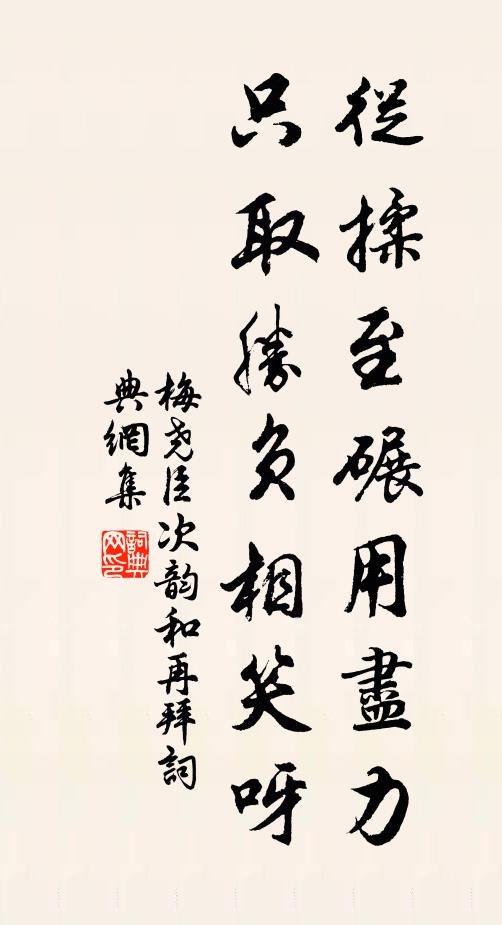 從揉至碾用盡力
只取勝負相笑呀
梅堯臣次韵和再拜詞
典網集
詞典
网印